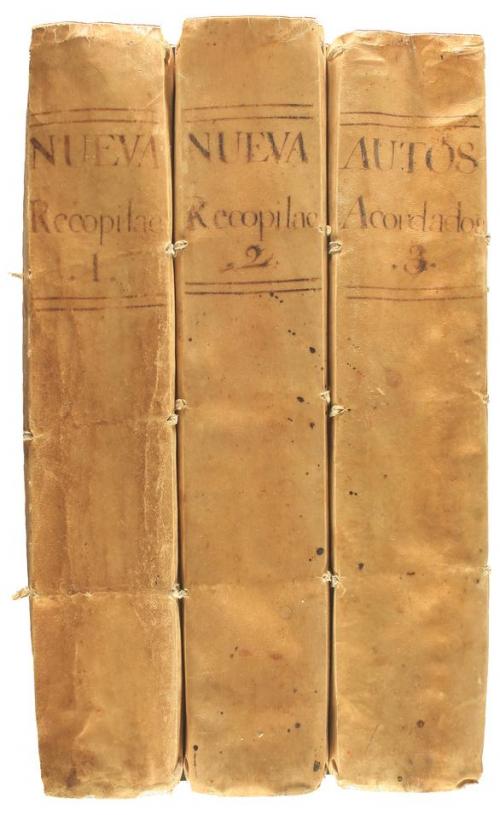 NUEVA
Recopilac
.1.
NUEVA
Recopilac
.2.
AUTOS
Acordados
.3.